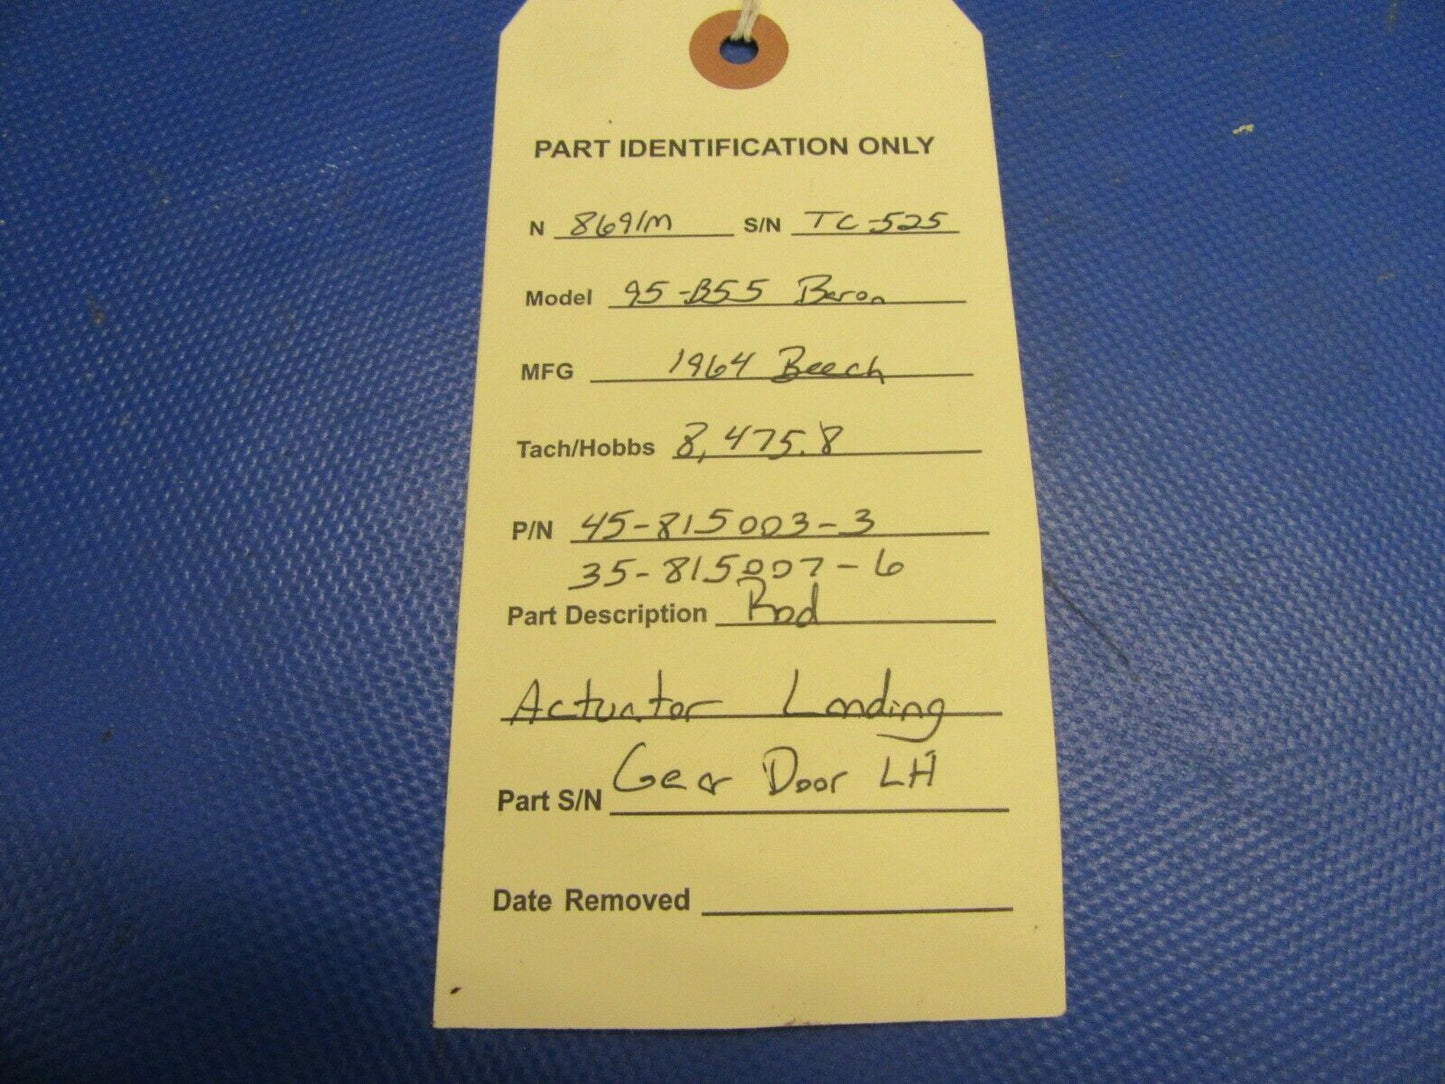 PART IDENTIFICATION ONLY
N 8691M S/N TC-525
Model 95-B55 Baron
MFG 1964 Beech
Tach/Hobbs 8,475.8
P/N 45-815003-3
35-815007-6
Part Description Rod
Actuator Landing
Gear Door LH
Part S/N
Date Removed